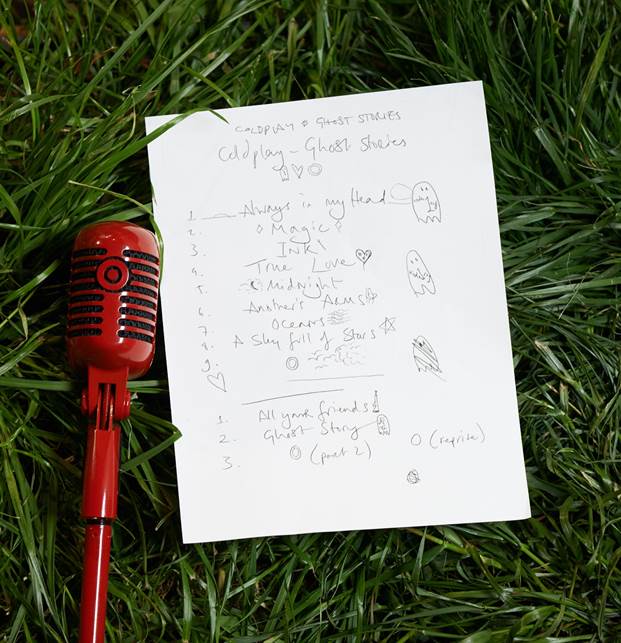 COLDPLAY & GHOST STORIES
Coldplay - Ghost Stories
1. Always in my Head
2. Magic
3. INK
4. True Love
5. Midnight
6. Another's Arms
7. Oceans
8. A Sky full of Stars
9. O
1. All your friends
2. Ghost Story
3. O (part 2) O (reprise)